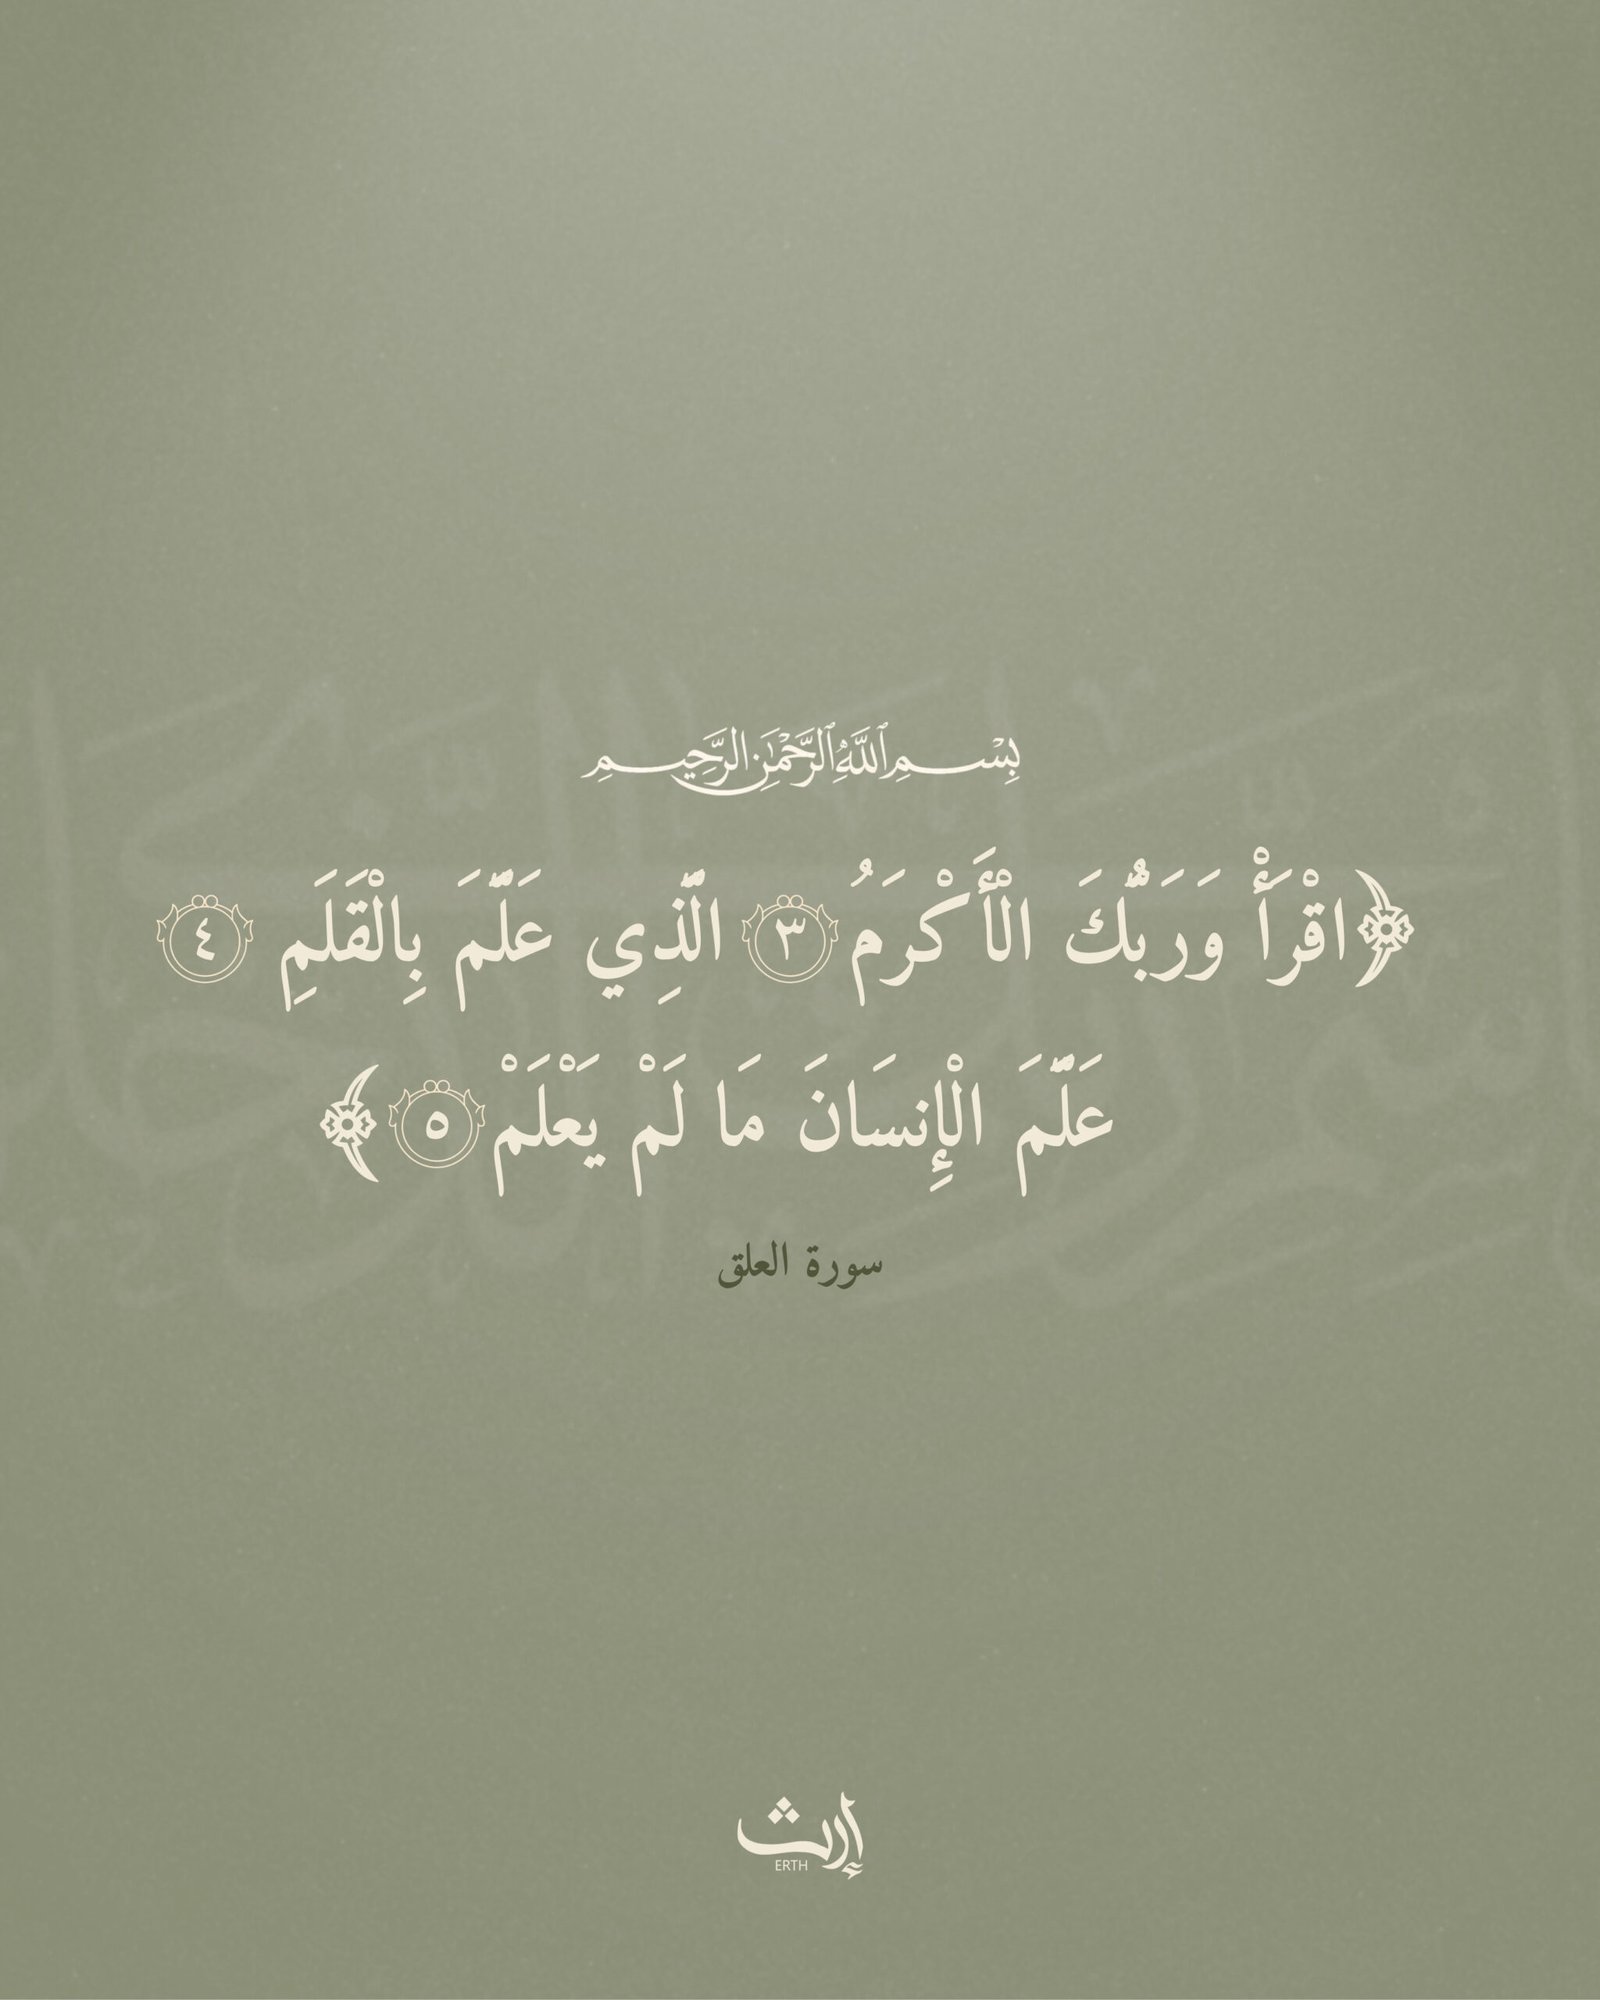 بِسْمِ ٱللَّهِ ٱلرَّحْمَٰنِ ٱلرَّحِيمِ
﴿اقْرَأْ وَرَبُّكَ الْأَكْرَمُ ٣ الَّذِي عَلَّمَ بِالْقَلَمِ ٤
عَلَّمَ الْإِنسَانَ مَا لَمْ يَعْلَمْ ٥﴾
سورة العلق
إرث
ERTH